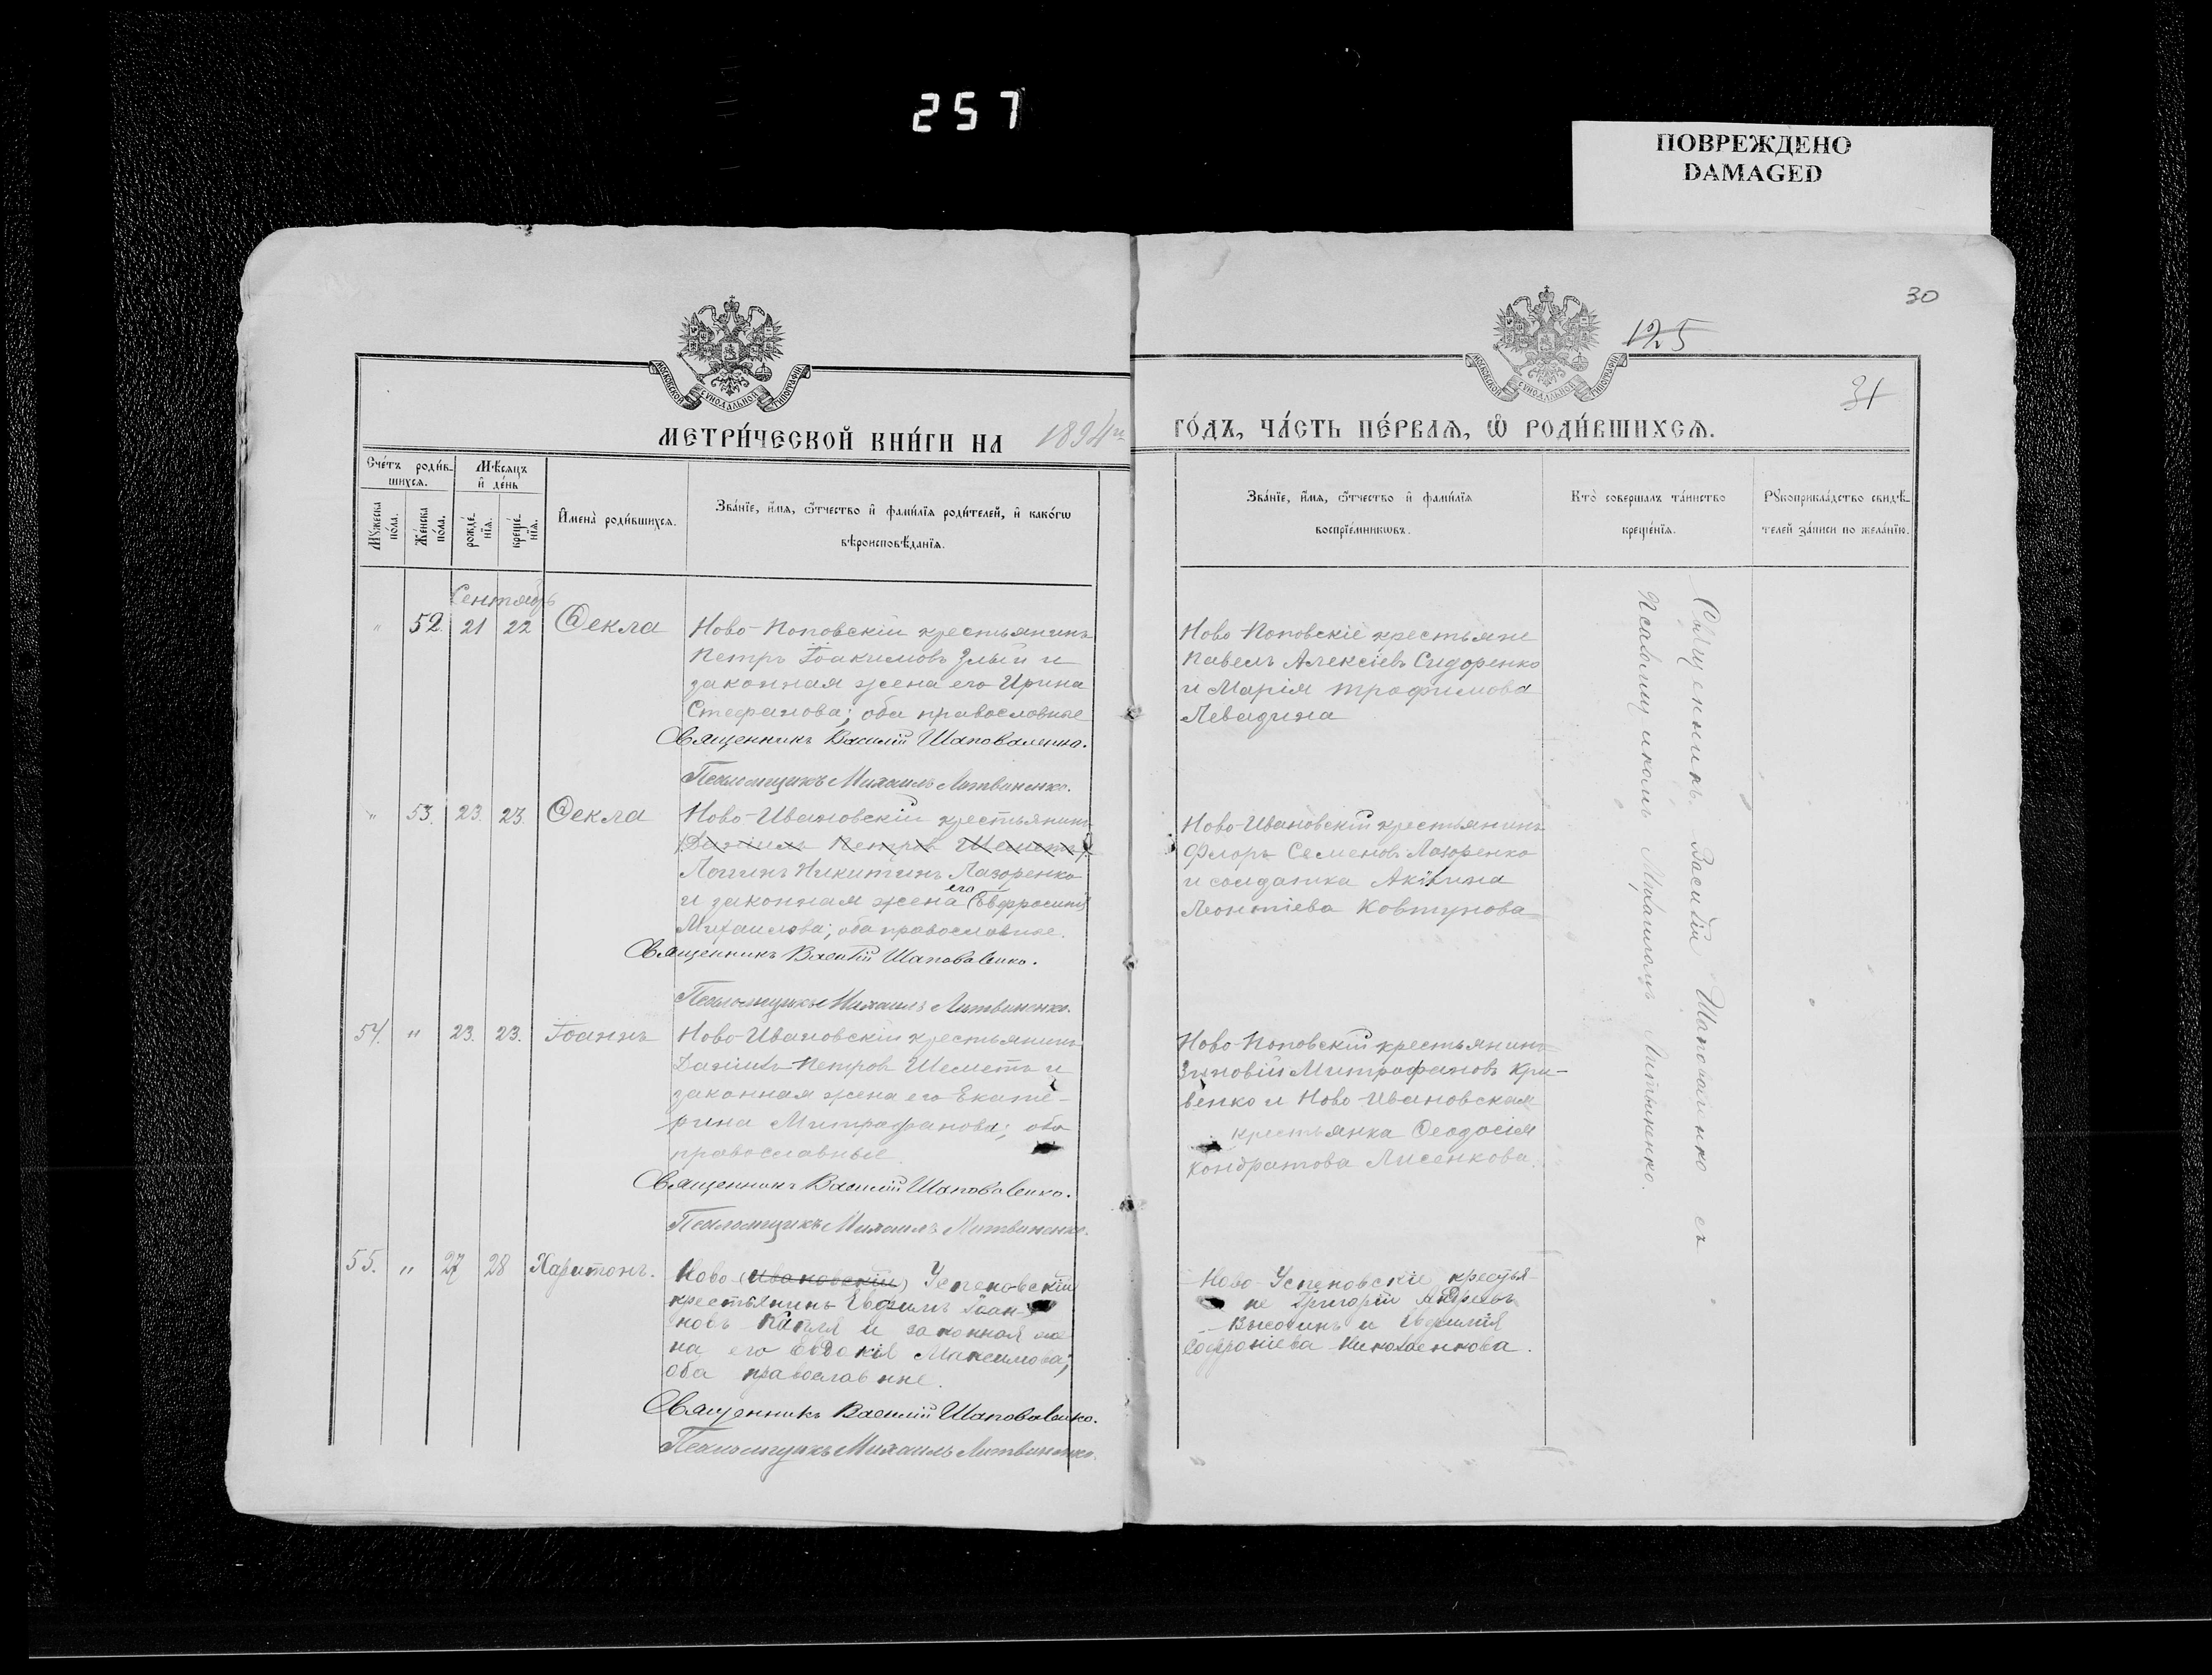 257
ПОВРЕЖДЕНО
DAMAGED
30
125
31
МОСКОВСКОЙ СѴНОДАЛЬНОЙ ТИПОГРАФІИ
МОСКОВСКОЙ СѴНОДАЛЬНОЙ ТИПОГРАФІИ
МЕТРИ́ЧЕСКОЙ КНИ́ГИ НА 1894й
ГО́ДЪ, ЧА́СТЬ ПЕ́РВАЯ, Ѡ РОДИ́ВШИХСЯ.
Сче́тъ роди́в-
шихся.
Мѣ́сяцъ
и де́нь
Мꙋ́жеска
по́ла.
Же́нска
по́ла.
рожде́-
нїя.
креще́-
нїя.
Имена̀ роди́вшихся.
Зва́нїе, и́мя, ѻ́тчество и фами́лїя роди́телей, и како́гѡ
вѣроисповѣ́данїя.
Зва́нїе, и́мя, ѻ́тчество и фами́лїя
воспрїе́мникѡвъ.
Кто̀ соверша́лъ та́инство
креще́нїя.
Рꙋкоприкла́дство свидѣ́-
телей за́писи по жела́нїю.
Сентябрь
" 52. 21 22 Ѳекла
Ново-Поповскій крестьянинъ
Петръ Іоакимовъ Злый и
законная жена его Ирина
Стефанова; оба православные
Священникъ Василій Шаповаленко.
Псаломщикъ Михаилъ Литвиненко.
Ново Поповскіе крестьяне
Павелъ Алексіевъ Сидоренко
и Марія Трофимова
Левадина
" 53. 23. 23. Ѳекла
Ново-Ивановскій крестьянинъ
(Даніилъ Петровъ Шеметъ)
Логинъ Никитинъ Лазоренко
и законная жена его Евфросинія
Михаилова; оба православные.
Священникъ Василій Шаповаленко.
Псаломщикъ Михаилъ Литвиненко.
Ново-Ивановскій крестьянинъ
Флоръ Семеновъ Лазоренко
и солдатка Акилина
Леонтіева Ковтунова
54. " 23. 23. Іоаннъ
Ново-Ивановскій крестьянинъ
Даніилъ Петровъ Шеметъ и
законная жена его Екате-
рина Митрофанова; оба
православные.
Священникъ Василій Шаповаленко.
Псаломщикъ Михаилъ Литвиненко.
Ново-Поповскій крестьянинъ
Зиновій Митрофановъ Кри-
венко и Ново-Ивановская
крестьянка Ѳеодосія
Кондратова Лисенкова.
55. " 27 28 Харитонъ.
Ново (Ивановскій) Успеновскій
крестьянинъ Евфимъ Іоан-
новъ и законная же
на его Евдокія Максимова;
оба православные.
Священникъ Василій Шаповаленко.
Псаломщикъ Михаилъ Литвиненко.
Ново-Успеновскіе крестья-
не Григорій Андреевъ
Высотинъ и Евфимія
Софроніева Николаенкова.
Священникъ Василій Шаповаленко съ
Псаломщикомъ Михаиломъ Литвиненко.